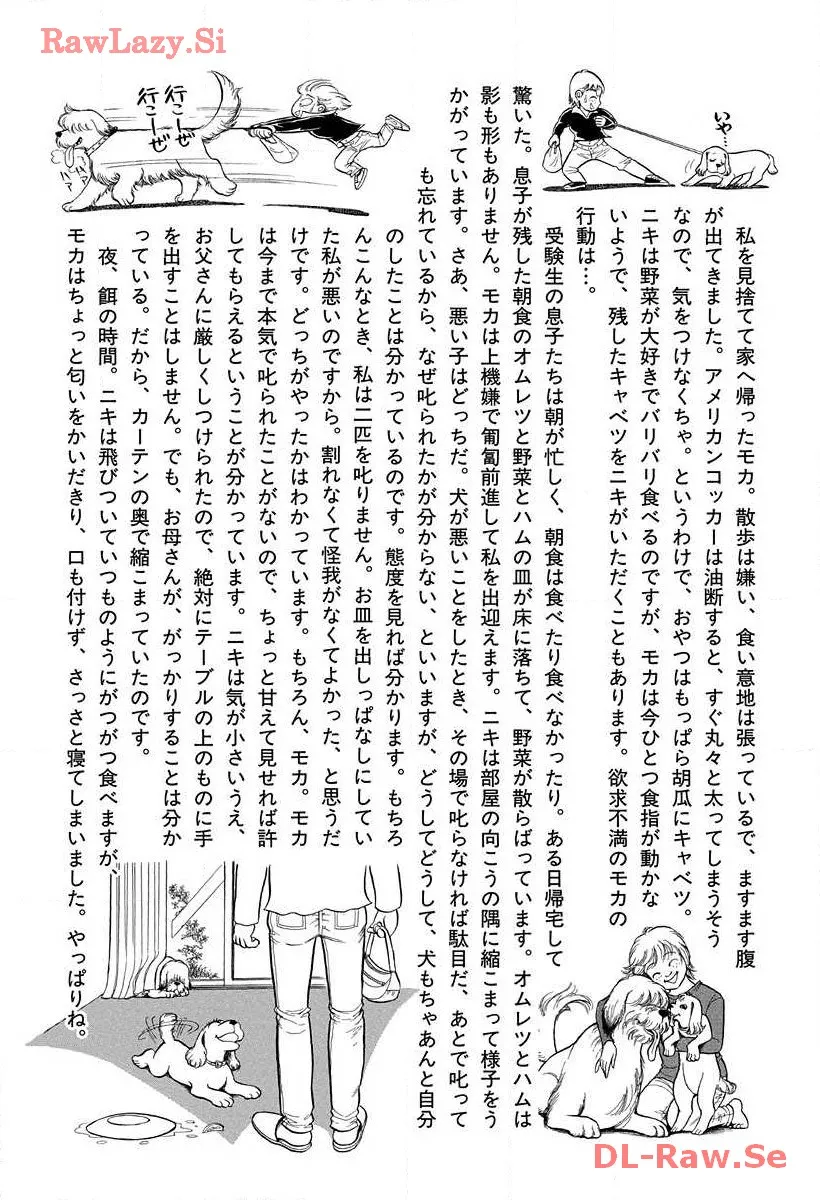 RawLazy.Si
いや…
行こーぜ
行こーぜ
ハァ
ハァ
私を見捨てて家へ帰ったモカ。散歩は嫌い、食い意地は張っているで、ますます腹
が出てきました。アメリカンコッカーは油断すると、すぐ丸々と太ってしまうそう
なので、気をつけなくちゃ。というわけで、おやつはもっぱら胡瓜にキャベツ。
ニキは野菜が大好きでバリバリ食べるのですが、モカは今ひとつ食指が動かな
いようで、残したキャベツをニキがいただくこともあります。欲求不満のモカの
行動は…。
受験生の息子たちは朝が忙しく、朝食は食べたり食べなかったり。ある日帰宅して
驚いた。息子が残した朝食のオムレツと野菜とハムの皿が床に落ちて、野菜が散らばっています。オムレツとハムは
影も形もありません。モカは上機嫌で匍匐前進して私を出迎えます。ニキは部屋の向こうの隅に縮こまって様子をう
かがっています。さあ、悪い子はどっちだ。犬が悪いことをしたとき、その場で叱らなければ駄目だ、あとで叱って
も忘れているから、なぜ叱られたかが分からない、といいますが、どうしてどうして、犬もちゃあんと自分
のしたことは分かっているのです。態度を見れば分かります。もちろ
んこんなとき、私は二匹を叱りません。お皿を出しっぱなしにしてい
た私が悪いのですから。割れなくて怪我がなくてよかった、と思うだ
けです。どっちがやったかはわかっています。もちろん、モカ。モカ
は今まで本気で叱られたことがないので、ちょっと甘えて見せれば許
してもらえるということが分かっています。ニキは気が小さいうえ、
お父さんに厳しくしつけられたので、絶対にテーブルの上のものに手
を出すことはしません。でも、お母さんが、がっかりすることは分か
っている。だから、カーテンの奥で縮こまっていたのです。
夜、餌の時間。ニキは飛びついていつものようにがつがつ食べますが、
モカはちょっと匂いをかいだきり、口も付けず、さっさと寝てしまいました。やっぱりね。
DL-Raw.Se